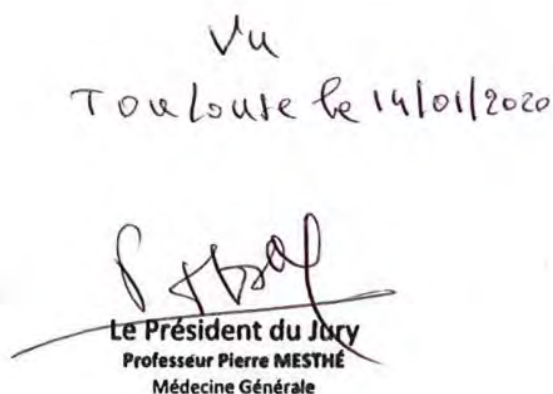 Vu
Toulouse le 14/01/2020
Le Président du Jury
Professeur Pierre MESTHÉ
Médecine Générale